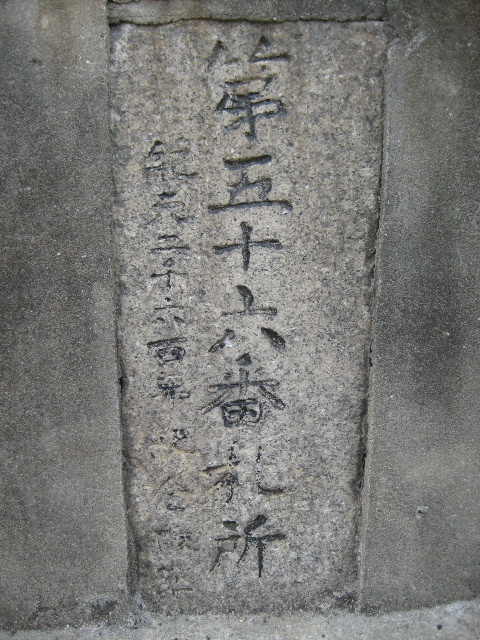 第五十六番札所
紀元二千六百年記念